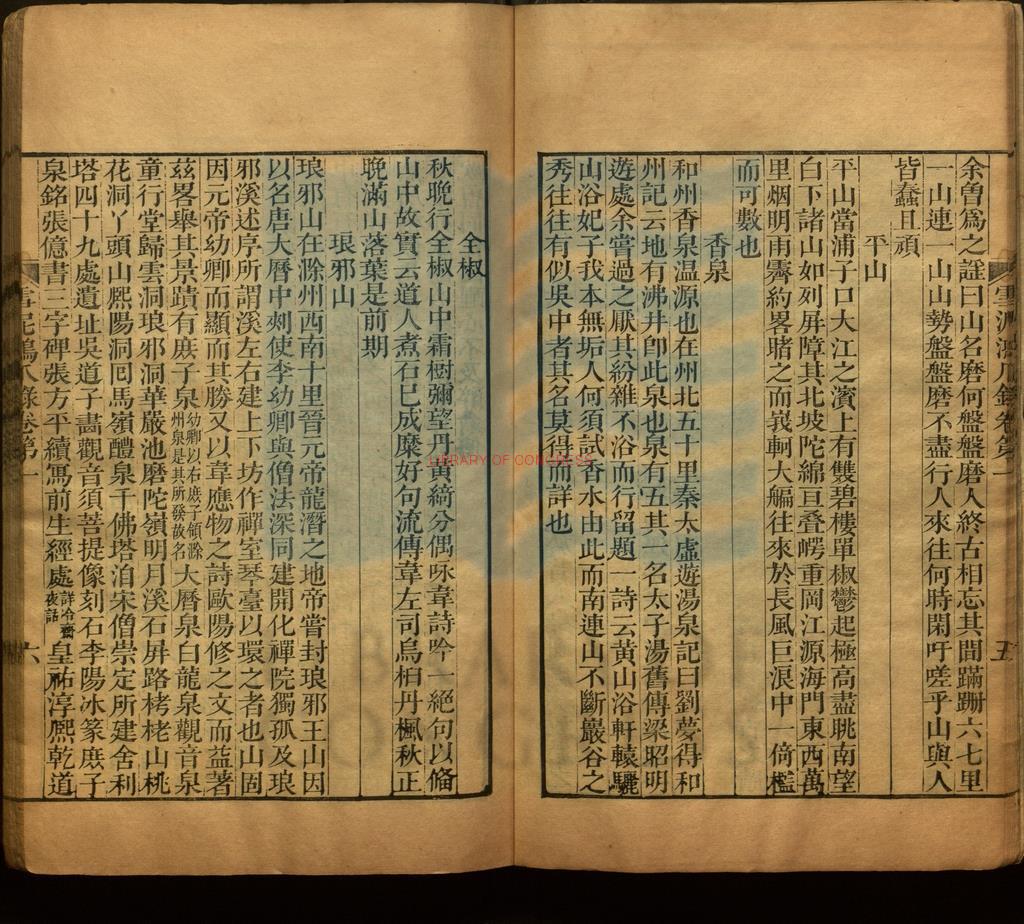 余曽爲之謡曰山名磨何盤盤磨人終古相忘其間蹣跚六七里
一山連一山山勢盤盤磨不盡行人來往何時閑吁嗟乎山與人
皆蠢且頑
平山
平山當浦子口大江之濱上有雙碧樓單椒鬱起極高盡眺南望
白下諸山如列屏障其北坡陀綿亘叠崿重岡江源海門東西萬
里烟明雨霽約畧睹之而峩軻大艑往來於長風巨浪中一倚檻
而可數也
香泉
和州香泉温源也在州北五十里秦太虛遊湯泉記曰劉夢得和
州記云地有沸井卽此泉也泉有五其一名太子湯舊傳梁昭明
遊處余嘗過之厭其紛雜不浴而行留題一詩云黃山浴軒轅驪
山浴妃子我本無垢人何須試香水由此而南連山不斷巖谷之
秀往往有似吳中者其名莫得而詳也
雪泥鴻爪錄卷第一
五
全椒
秋晩行全椒山中霜樹彌望丹黃綺分偶咏韋詩吟一絶句以備
山中故實云道人煮石已成糜好句流傳韋左司烏桕丹楓秋正
晩滿山落葉是前期
琅邪山
琅邪山在滁州西南十里晉元帝龍潛之地帝嘗封琅邪王山因
以名唐大曆中刺使李幼卿與僧法深同建開化禪院獨孤及琅
邪溪述序所謂溪左右建上下坊作禪室琴臺以環之者也山固
因元帝幼卿而顯而其勝又以韋應物之詩歐陽修之文而益著
茲畧舉其景蹟有庶子泉幼卿以右庶子領滁州泉是其所發故名大曆泉白龍泉觀音泉
童行堂歸雲洞琅邪洞華嚴池磨陀嶺明月溪石屏路栲栳山桃
花洞丫頭山熙陽洞囘馬嶺醴泉千佛塔洎宋僧崇定所建舍利
塔四十九處遺址吳道子畵觀音須菩提像刻石李陽冰篆庶子
泉銘張億書三字碑張方平續寫前生經處詳冷齋夜話皇祐淳熙乾道
雪泥鴻爪錄卷第一
六
LIBRARY OF CONGRESS